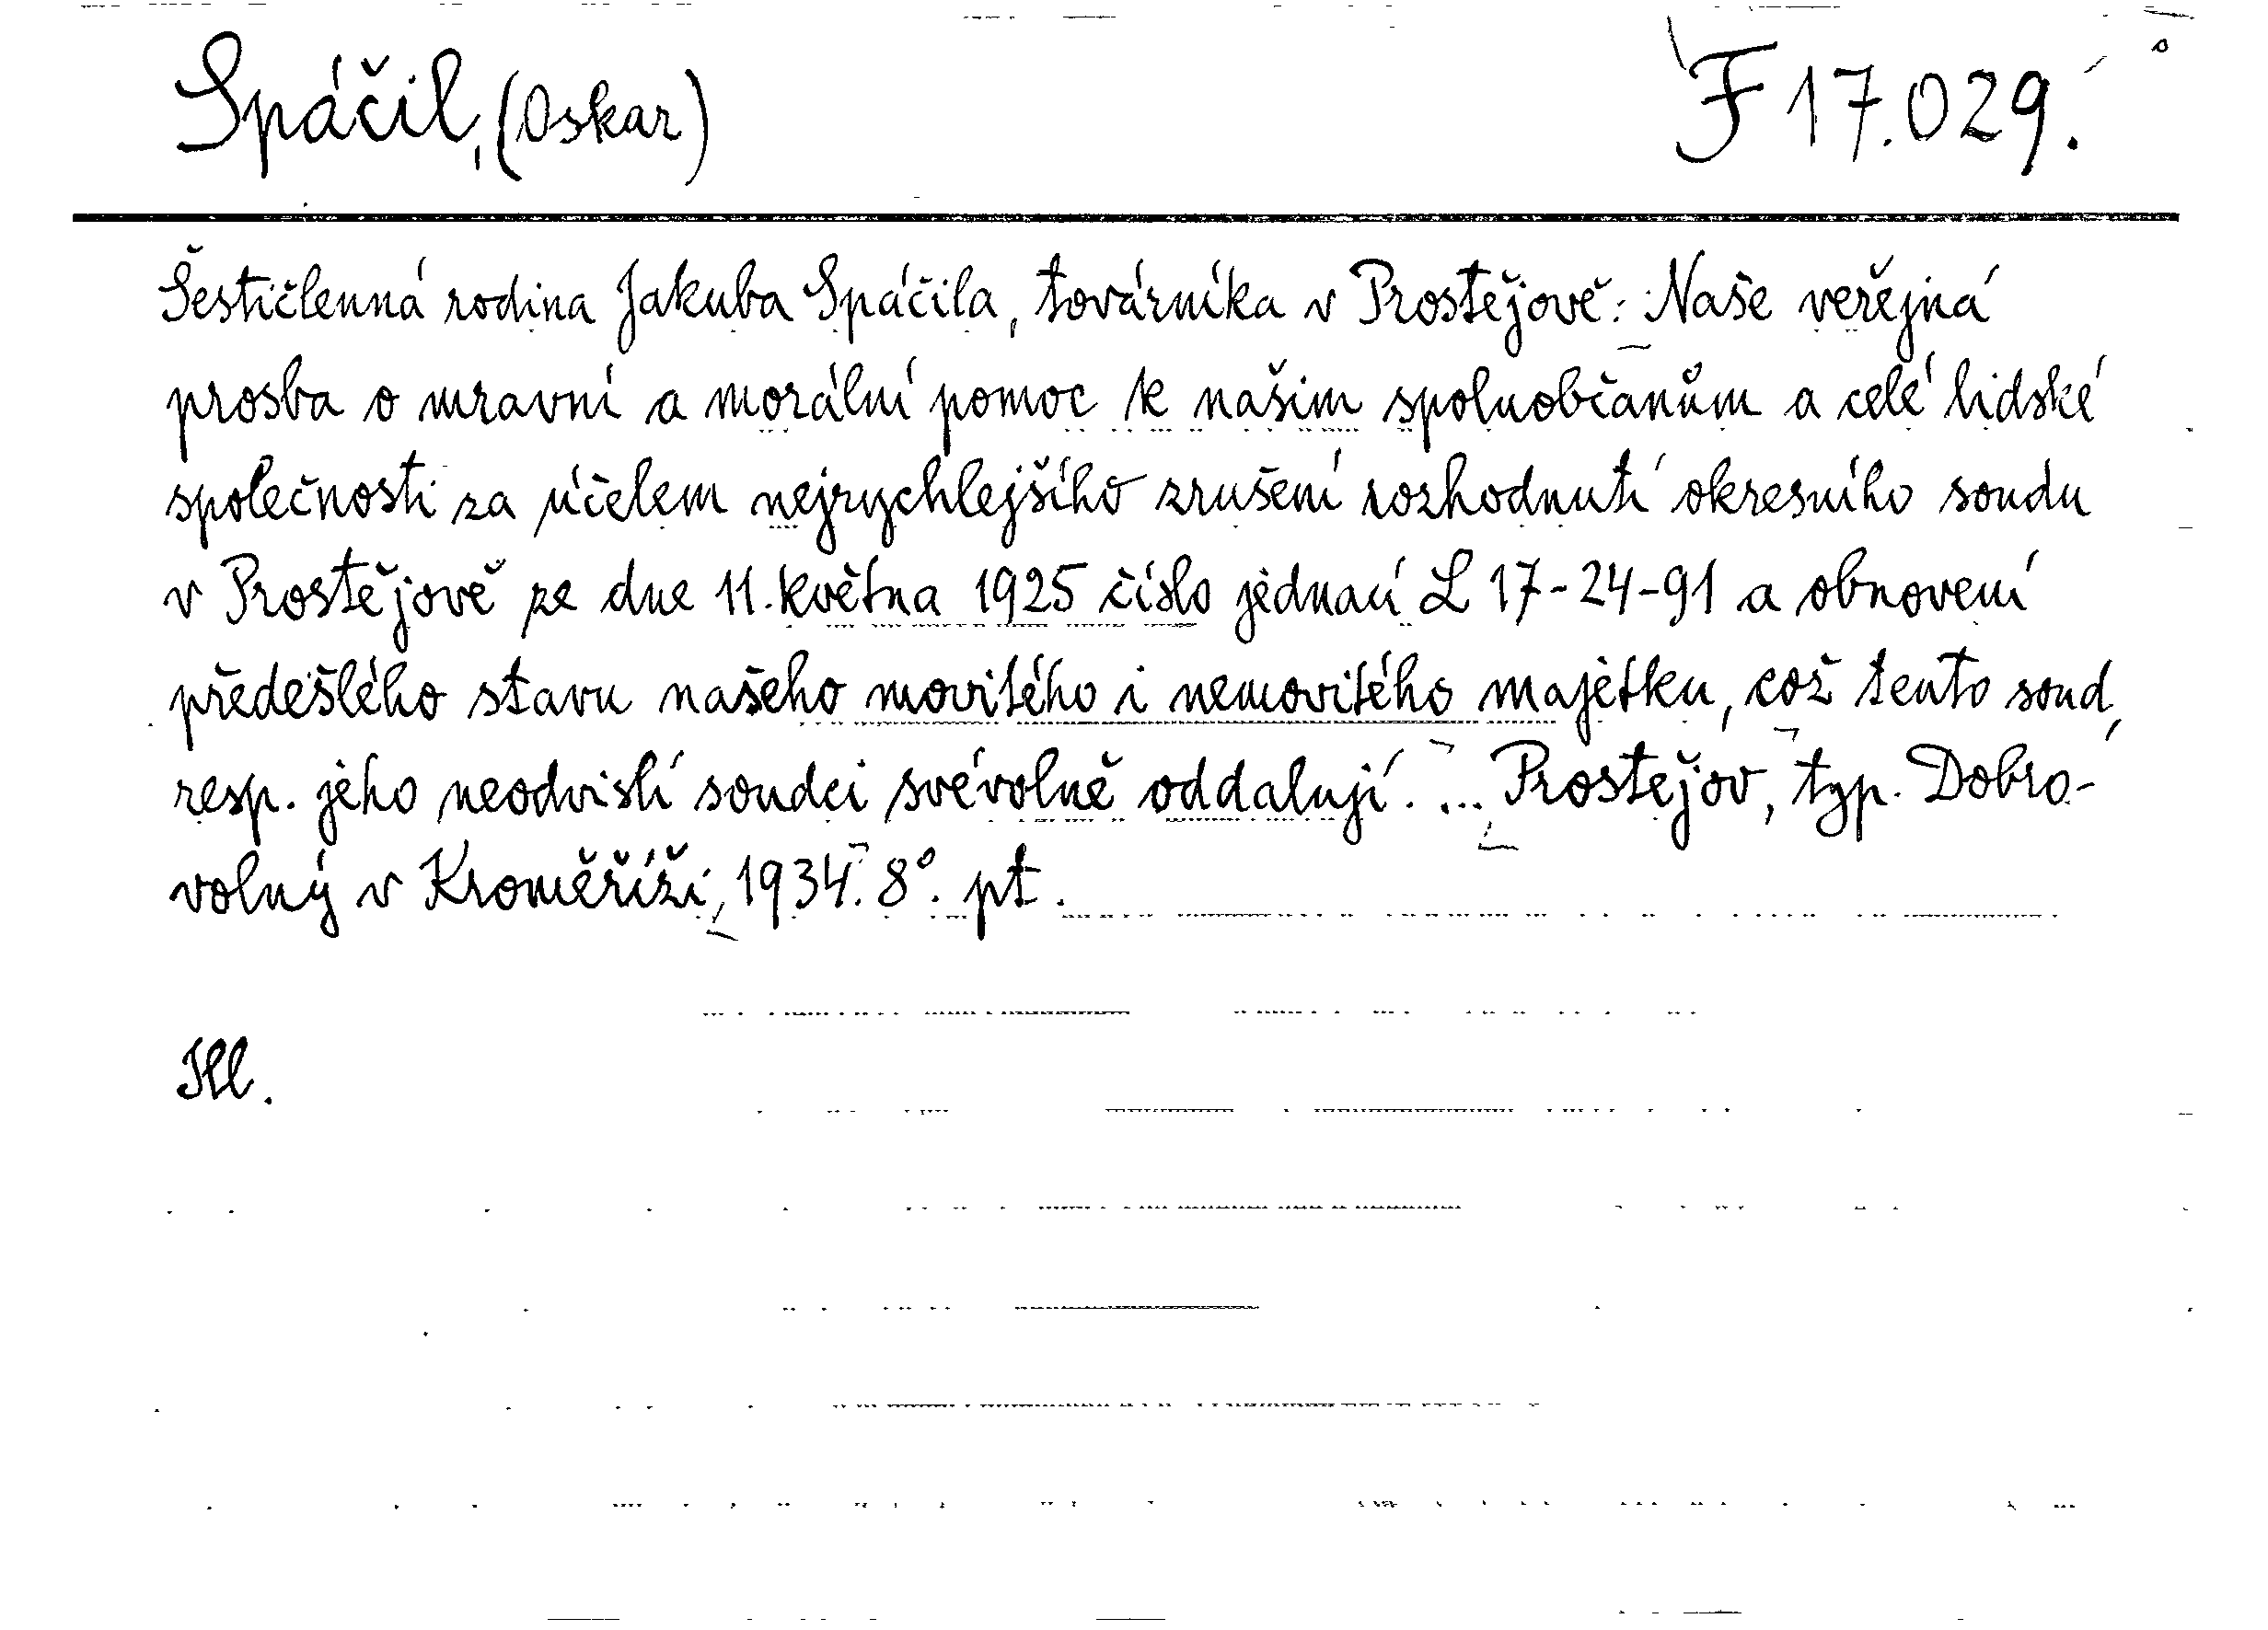 Spáčil, (Oskar) F 17.029.
Šestičlenná rodina Jakuba Spáčila, továrníka v Prostějově: Naše veřejná
prosba o mravní a morální pomoc k našim spoluobčanům a celé lidské
společnosti za účelem nejrychlejšího zrušení rozhodnutí okresního soudu
v Prostějově ze dne 11. května 1925 číslo jednací L 17-24-91 a obnovení
předešlého stavu našeho movitého i nemovitého majetku, což tento soud,
resp. jeho neodvislí soudci svévolně oddalují. ... Prostějov, typ. Dobro-
volný v Kroměříži, 1934. 8°. pt.
Ill.